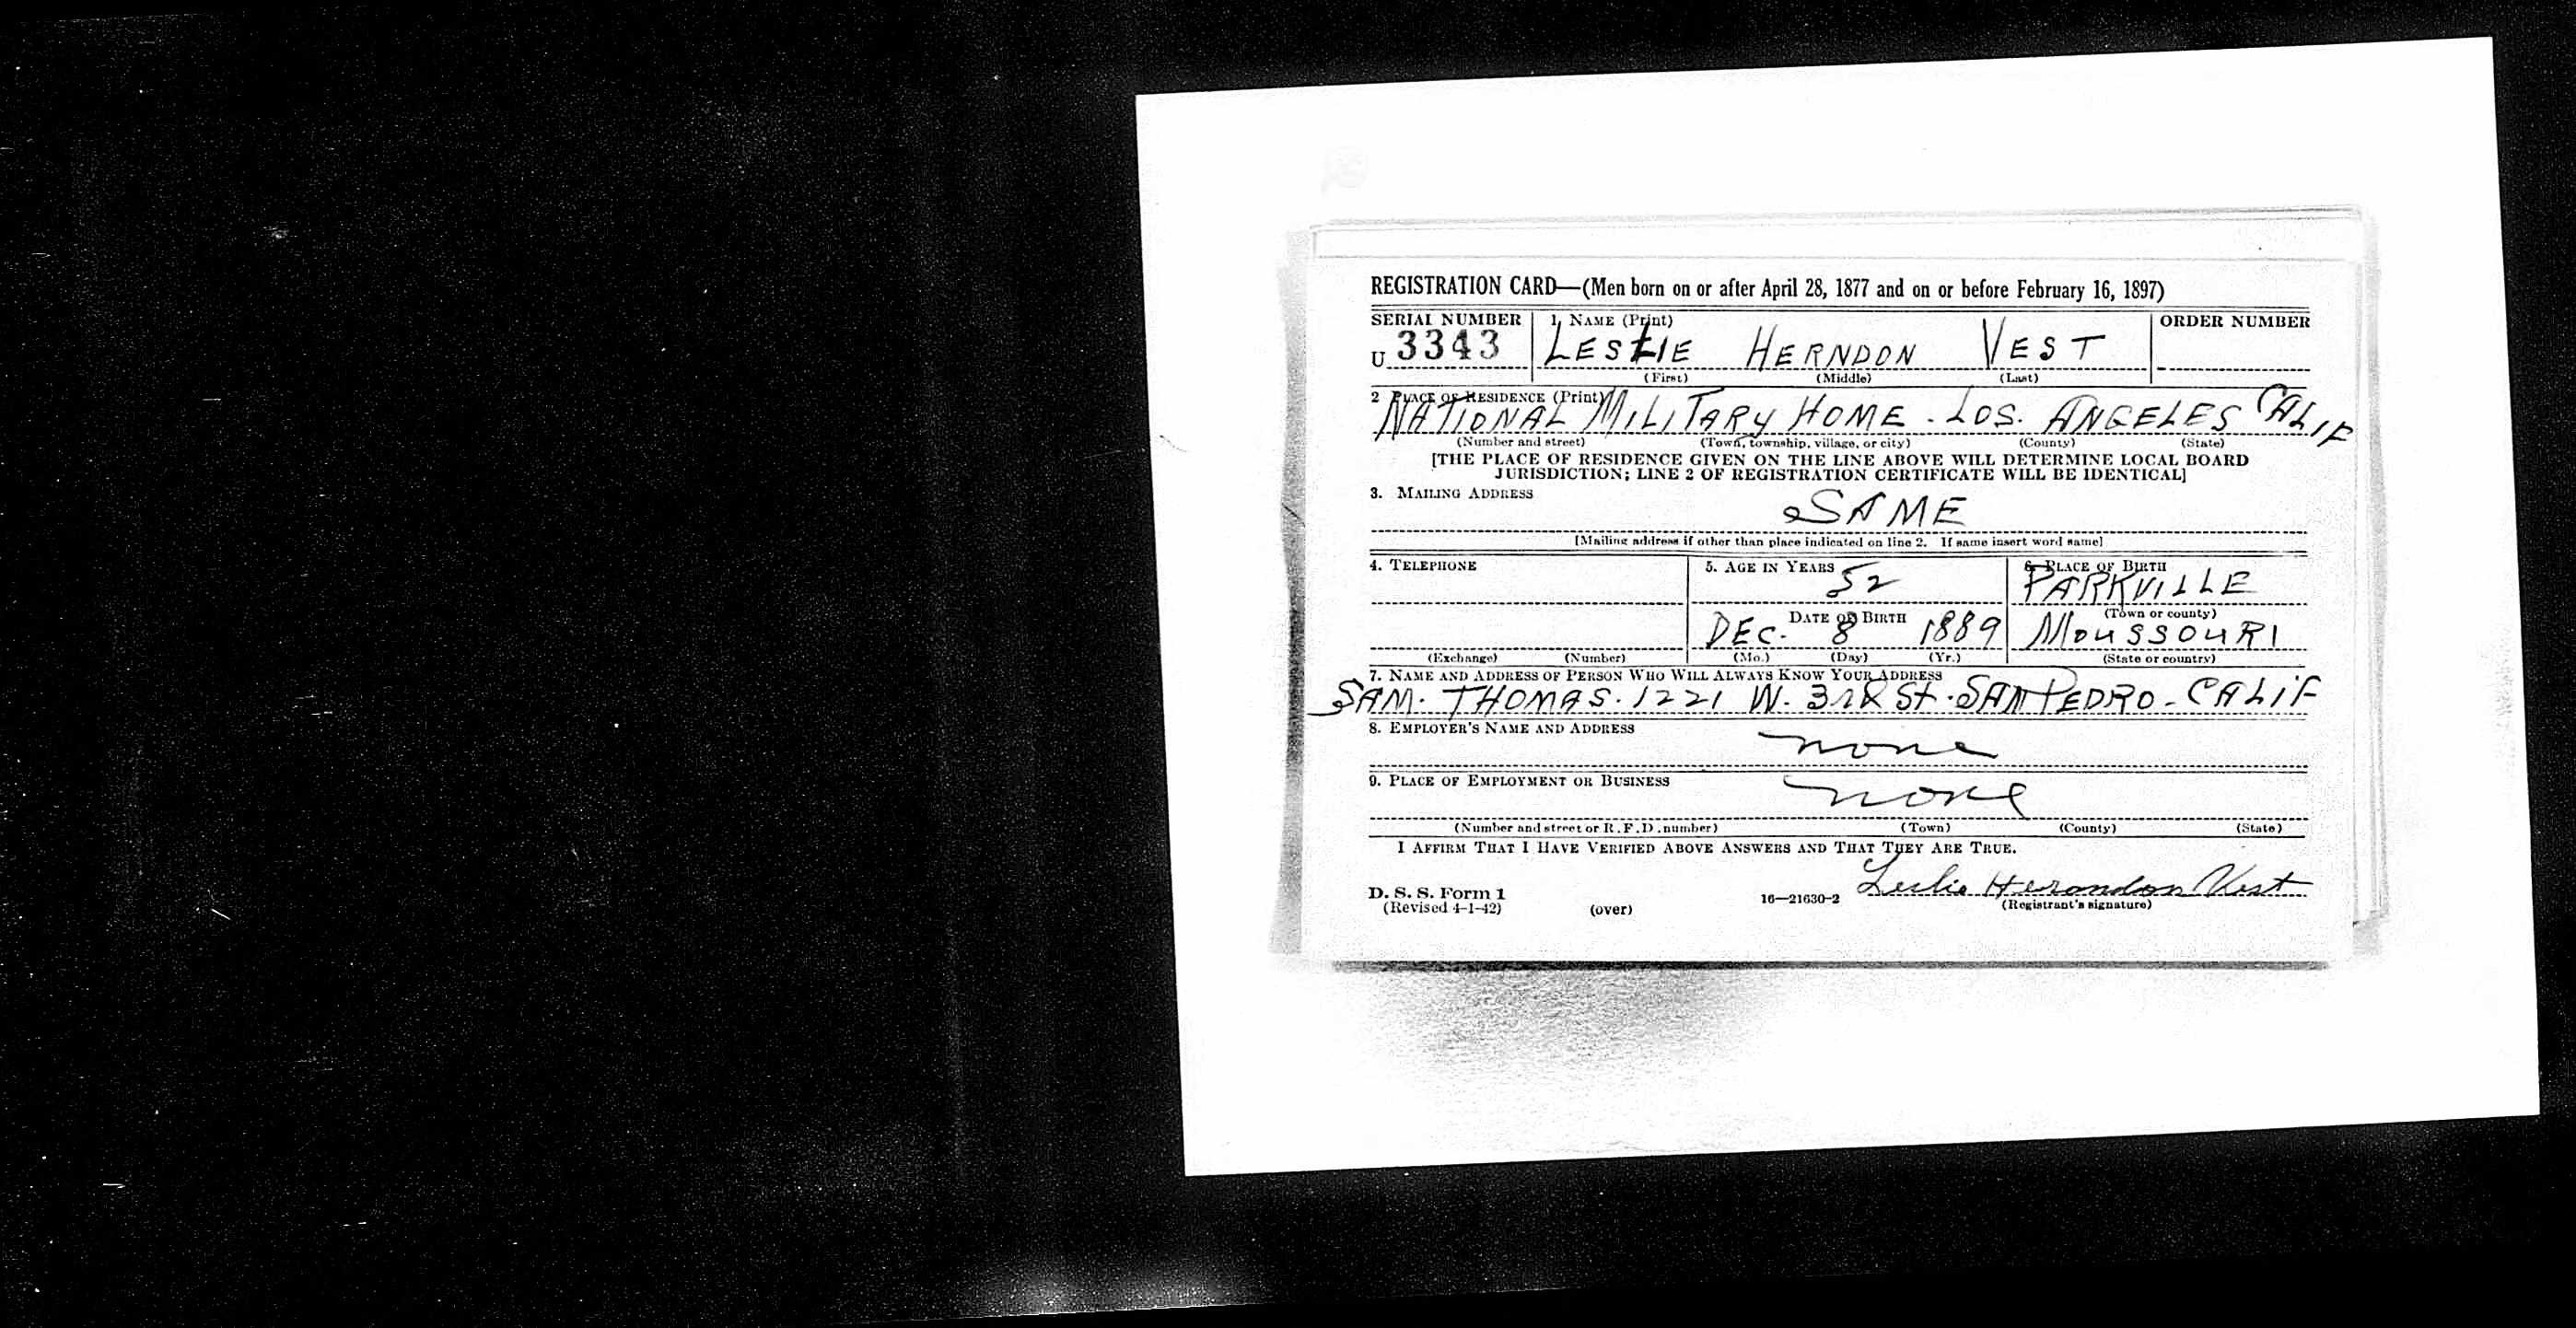 REGISTRATION CARD—(Men born on or after April 28, 1877 and on or before February 16, 1897)
SERIAL NUMBER 1. NAME (Print) ORDER NUMBER
U 3343 LESLIE HERNDON VEST
(First) (Middle) (Last)
2 PLACE OF RESIDENCE (Print)
NATIONAL MILITARY HOME - LOS. ANGELES CALIF
(Number and street) (Town, township, village, or city) (County) (State)
[THE PLACE OF RESIDENCE GIVEN ON THE LINE ABOVE WILL DETERMINE LOCAL BOARD
JURISDICTION; LINE 2 OF REGISTRATION CERTIFICATE WILL BE IDENTICAL]
3. MAILING ADDRESS
SAME
[Mailing address if other than place indicated on line 2. If same insert word same]
4. TELEPHONE 5. AGE IN YEARS 6. PLACE OF BIRTH
52 PARKVILLE
DATE OF BIRTH (Town or county)
DEC. 8 1889 MOUSSOURI
(Exchange) (Number) (Mo.) (Day) (Yr.) (State or country)
7. NAME AND ADDRESS OF PERSON WHO WILL ALWAYS KNOW YOUR ADDRESS
SAM. THOMAS. 1221 W. 3rd St. SAN PEDRO - CALIF
8. EMPLOYER'S NAME AND ADDRESS
none
9. PLACE OF EMPLOYMENT OR BUSINESS
none
(Number and street or R. F. D. number) (Town) (County) (State)
I AFFIRM THAT I HAVE VERIFIED ABOVE ANSWERS AND THAT THEY ARE TRUE.
Leslie Herondon Vest
D. S. S. Form 1
(Revised 4-1-42) (over) 16—21630-2 (Registrant's signature)